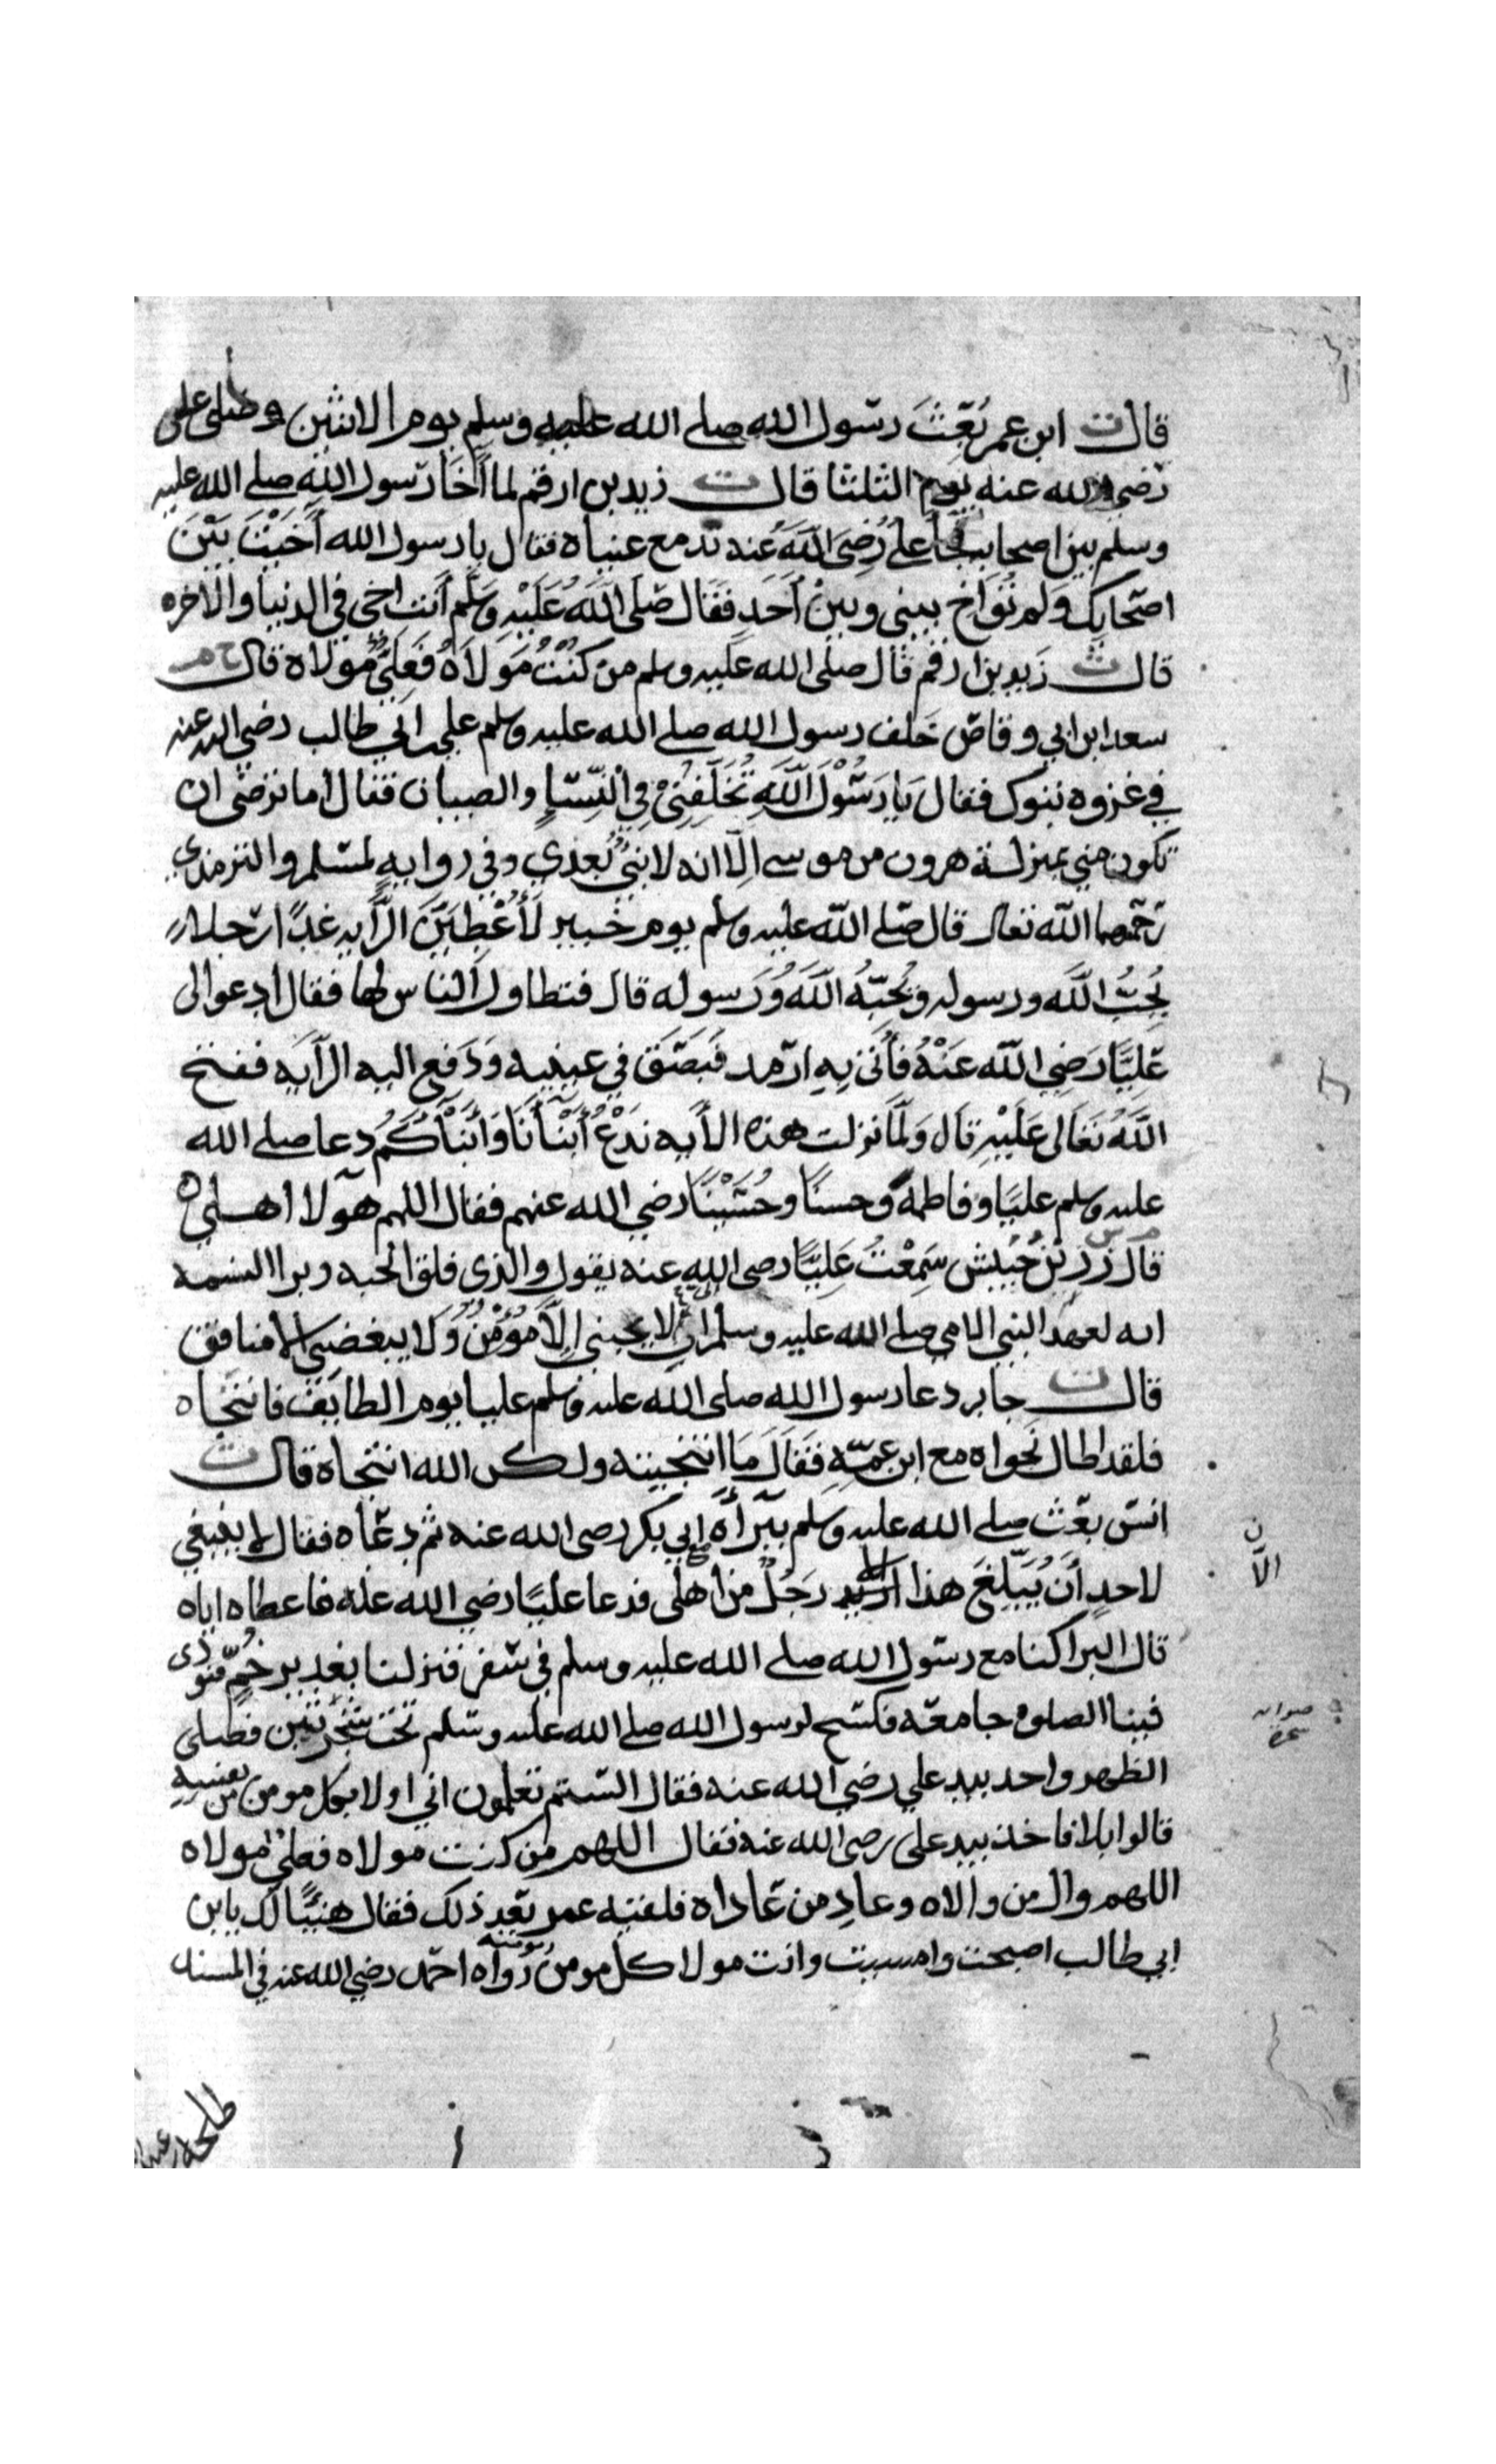 قال ت ابن عمر بُعِثَ رسول الله صلى الله عليه وسلم يوم الاثنين وصلى على
رضي الله عنه يوم الثلثا قال ت زيد بن ارقم لما آخَا رسول الله صلى الله عليه
وسلم بين اصحابه جأ علي رَضِيَ اللَّهُ عنه تدمع عيناه فقال يا رسول الله آخَيْتَ بَيْنَ
اصحابك وَلم تُوَاخِ بيني وبينْ أَحَدٍ فَقَال صَلى اللَّهُ عَلَيْهِ وَسَلَّم أَنت اخي في الدنيا والآخره
قال ت زيد بن ارقم قال صلى الله عليه وسلم من كُنْتُ مَوْلاَهُ فَعَلِيٌّ مولاه قال خ م
سعد ابن ابي وقاص خَلف رسول الله صلى الله عليه وسلم علي بن ابي طالب رضي الله عنه
في غزوه تبوك فقال يَا رَسُوْلَ اللَّهِ تُخَلِّفُنِيْ فِي النِّسَاءِ والصبيان فقال أما ترضى ان
تكون مني بمنزلة هرون من موسى إلّا انه لا نبيَّ بعدي وفي روايهٍ لمسلم والترمذي
رحمهما الله تعالى قال صلى الله عليه وسلم يوم خيبر لَأُعْطِيَنَّ الرَّايه غدًا رجلا
يُحِبُّ اللَّه ورسوله وَيُحِبُّهُ اللَّهُ وَرَسوله قال فتطاول الناس لها فقال ادعوا لى
عَلِيًّا رَضِي الله عَنْهُ فأُتِيَ بِهِ ارمد فَبَصَقَ في عينيه وَدَفع اليه الرَّايَه ففتح
اللَّهُ تَعَالى عَلَيْهِ قال وَلَمَّا نزلت هذه الآيه نَدْعُ أَبْنَأَنَا وَأَبْنَأَكُمْ دعا صلى الله
عليه وسلم عليًا وفاطمه وحسنًا وحُسَيْنًا رضي الله عنهم فقال اللهم هولا اهلي
قال زر بْن حُبَيْش سَمِعْتُ عَلِيًّا رضى الله عنه يقول والذى فلق الحبه وبرا النسمه
انه لعهد النبي الامي صلى الله عليه وسلم الي لا يحبني إلَّا مُؤْمِنٌ وَلا يبغضني الا منافق
قال ت جابر دعا رسول الله صلى الله عليه وسلم عليا يوم الطايف فانتجاه
فلقد اطال نجواه مع ابن عمّهِ فَقَالَ مَا انتجيته ولكن الله انتجاه قال ت
انس بعث صلى الله عليه وسلم ببَرَأَه ابي بكر رضى الله عنه ثم دعاه فقال لا ينبغي
لاحدٍ أَنْ يُبَلِّغَ هذا الا رَجُلٌ من اهلى فدعا عليًا رضي الله عنه فاعطاه اياه
الّا
قال البرا كنا مع رسول الله صلى الله عليه وسلم في سفر فنزلنا بغدير خُمٍّ فنودى
فينا الصلوة جامعة فكسح لرسول الله صلى الله عليه وسلم تحت شجرتين فصلى
الظهر واخد بيد علي رضي الله عنه فقال السْتم تعلمون اني اولا بكل مومن من نفسه
قالوا بلا فاخذ بيد على رضى الله عنه فقال اللهم من كنت مولاه فعلي مولاه
اللهم وال من والاه وعادِ من عَاداه فلقيه عمر بَعد ذلك فقال هنيئًا لك يابن
ابي طالب اصبحت وامسيت وانت مولا كل مومن ومومنه رواه احمد رضي الله عنه في المسند
طلحة